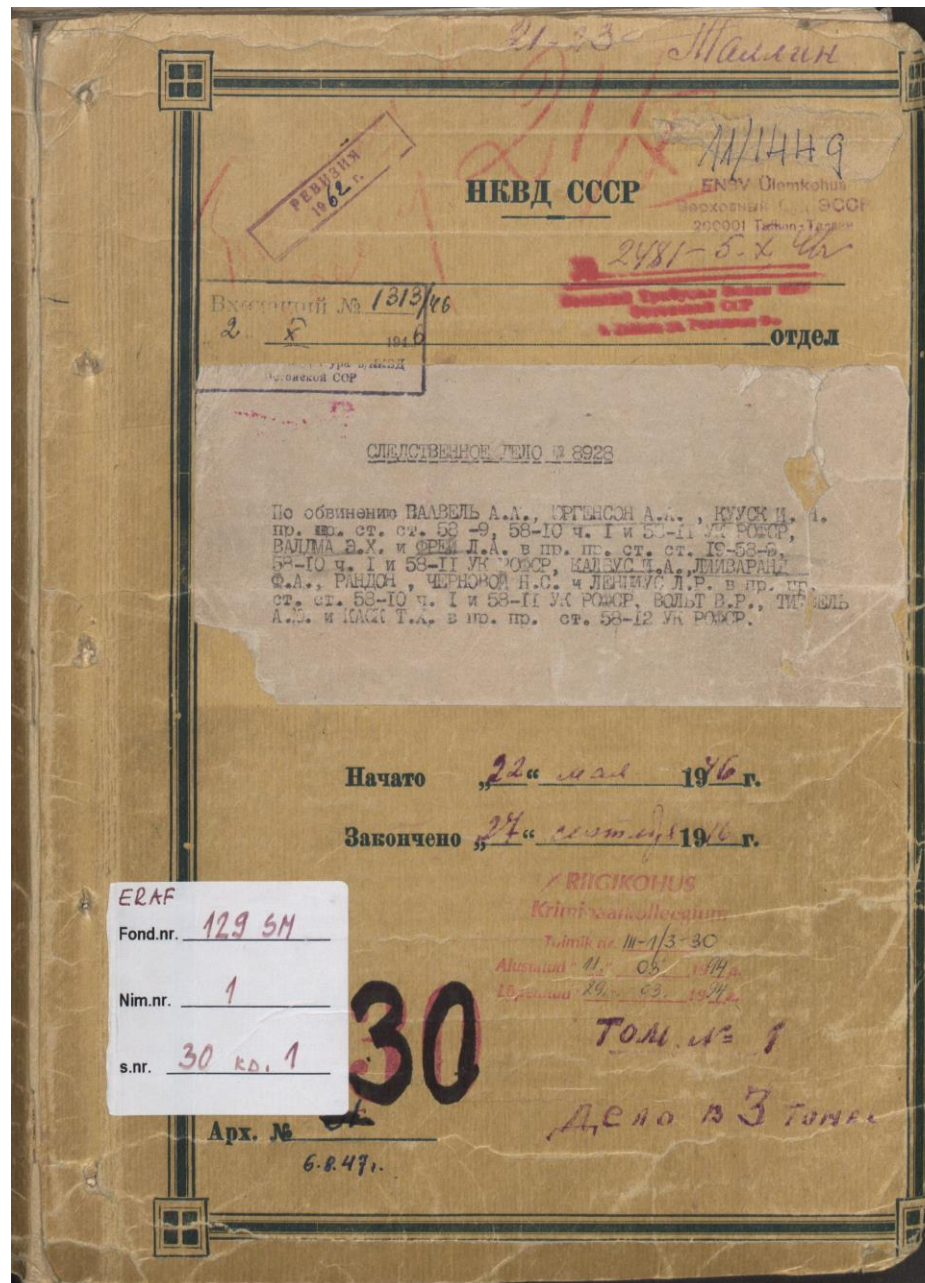 21-23 Таллин
211
11/1449
РЕВИЗИЯ
1962 г.
НКВД СССР
ENSV Ülemkohus
Верховный ЭССР
200001 Tallinn-Таллин
2481-5.X
Входящий № 1313/46
2. X 1946
ура в/НКВД
Эстонской ССР
отдел
СЛЕДСТВЕННОЕ ДЕЛО № 8928
По обвинению ВАЛВЕЛЬ А.А., ЮРГЕНСОН А.А., КУУСК И.
пр. пр. ст. ст. 58-9, 58-10 ч. I и 58-II УК РСФСР,
ВАЛДМА Э.Х. и ФРЕЙ Л.А. в пр. пр. ст. ст. 19-58-9,
58-10 ч. I и 58-II УК РСФСР, КАЛВУС И.А., ЛИЙВАРАНД
Ф.А., РАНДОН , ЧЕРНОВОЙ Н.С. и ЛЕННУС Л.Р. в пр. пр.
ст. ст. 58-10 ч. I и 58-II УК РСФСР, ВОЛЬТ В.Р.,
А.Ю. и КАСК Т.Х. в пр. пр. ст. 58-12 УК РСФСР.
Начато „22“ мая 1946 г.
Закончено „27“ сентября 1946 г.
RIGIKOHUS
Kriminaalkolleegium
Toimik nr. III-1/3-30
Alustatud 11. 03 1994 a.
Lõpetatud 29. 03. 1994 a.
ERAF
Fond.nr. 129 SM
Nim.nr. 1
s.nr. 30 кд. 1
30
ТОМ № 1
Дело в 3 томах
Арх. №
6.8.47г.